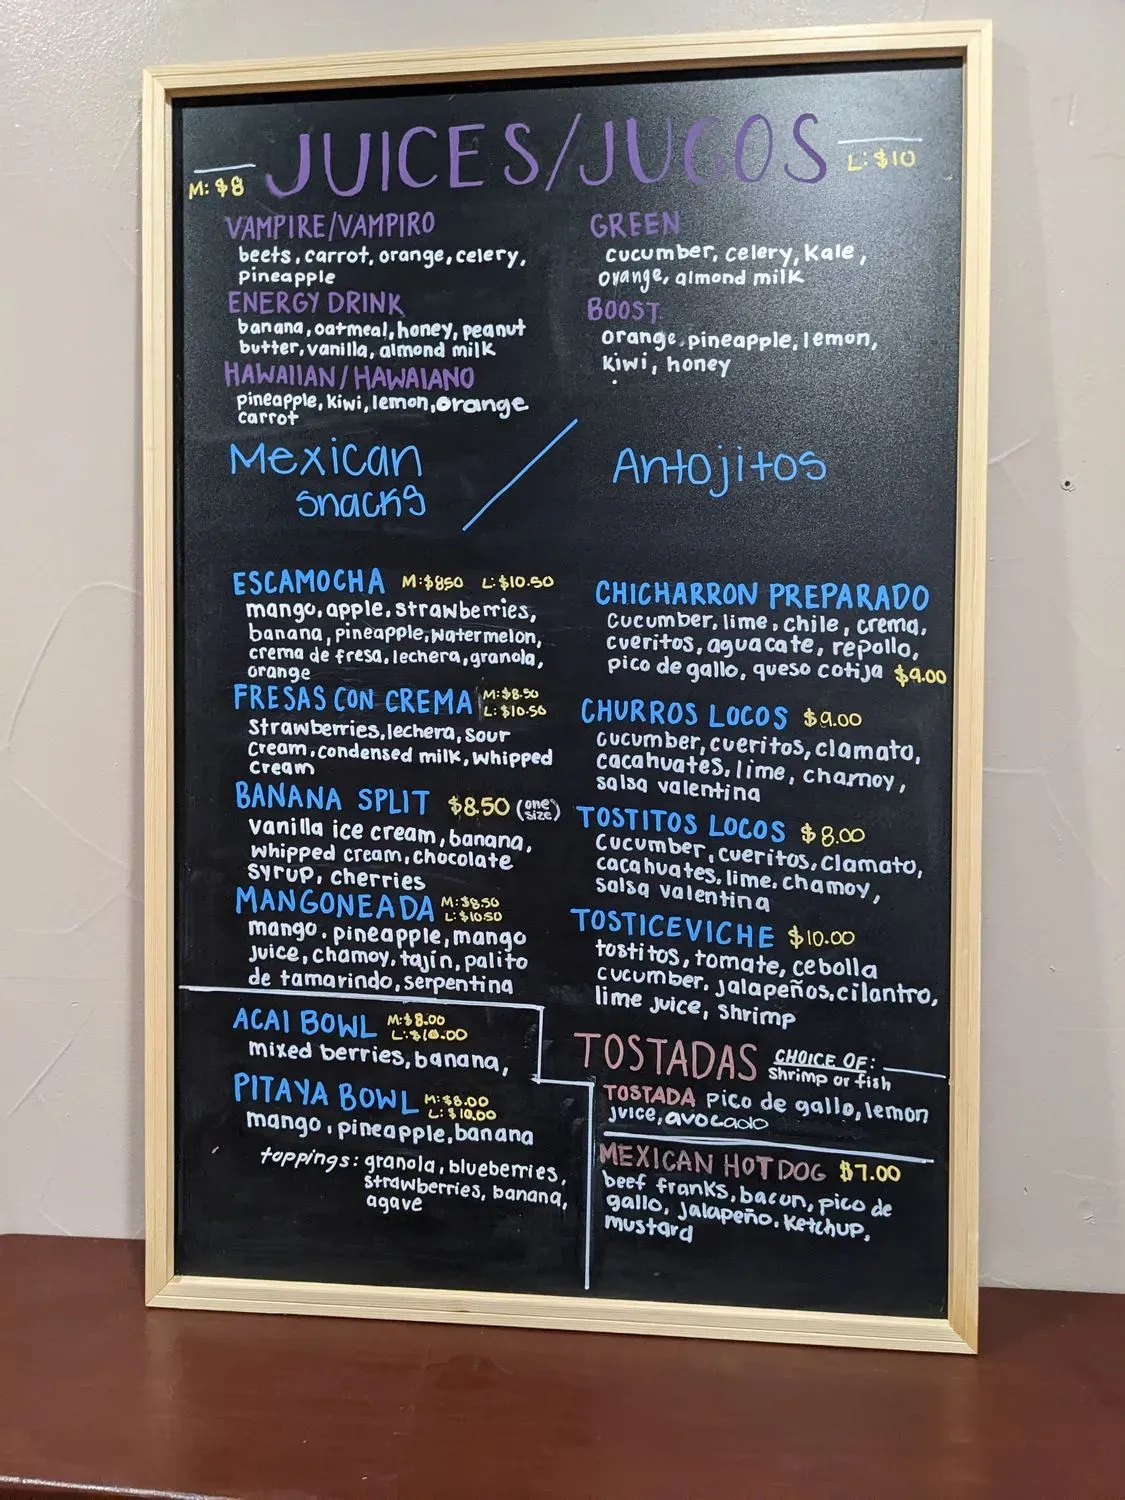 JUICES/JUGOS
M: $8
L: $10
VAMPIRE/VAMPIRO
beets, carrot, orange, celery,
pineapple
ENERGY DRINK
banana, oatmeal, honey, peanut
butter, vanilla, almond milk
HAWAIIAN/HAWAIANO
pineapple, kiwi, lemon, orange
carrot
GREEN
cucumber, celery, Kale,
orange, almond milk
BOOST
orange, pineapple, lemon,
kiwi, honey
Mexican
snacks
/
Antojitos
ESCAMOCHA M:$8.50 L:$10.50
mango, apple, strawberries,
banana, pineapple, watermelon,
crema de fresa, lechera, granola,
orange
FRESAS CON CREMA M:$8.50
L:$10.50
Strawberries, lechera, sour
cream, condensed milk, whipped
cream
BANANA SPLIT $8.50 (one size)
vanilla ice cream, banana,
whipped cream, chocolate
syrup, cherries
MANGONEADA M:$8.50
L:$10.50
mango, pineapple, mango
juice, chamoy, tajín, palito
de tamarindo, serpentina
ACAI BOWL M:$8.00
L:$10.00
mixed berries, banana,
PITAYA BOWL M:$8.00
L:$10.00
mango, pineapple, banana
toppings: granola, blueberries,
strawberries, banana,
agave
CHICHARRON PREPARADO
cucumber, lime, chile, crema,
cueritos, aguacate, repollo,
pico de gallo, queso cotija $9.00
CHURROS LOCOS $9.00
cucumber, cueritos, clamato,
cacahuates, lime, chamoy,
salsa valentina
TOSTITOS LOCOS $8.00
cucumber, cueritos, clamato,
cacahuates, lime, chamoy,
salsa valentina
TOSTICEVICHE $10.00
tostitos, tomate, cebolla
cucumber, jalapeños, cilantro,
lime juice, shrimp
TOSTADAS CHOICE OF:
shrimp or fish
TOSTADA pico de gallo, lemon
juice, avocado
MEXICAN HOT DOG $7.00
beef franks, bacon, pico de
gallo, jalapeño, ketchup,
mustard